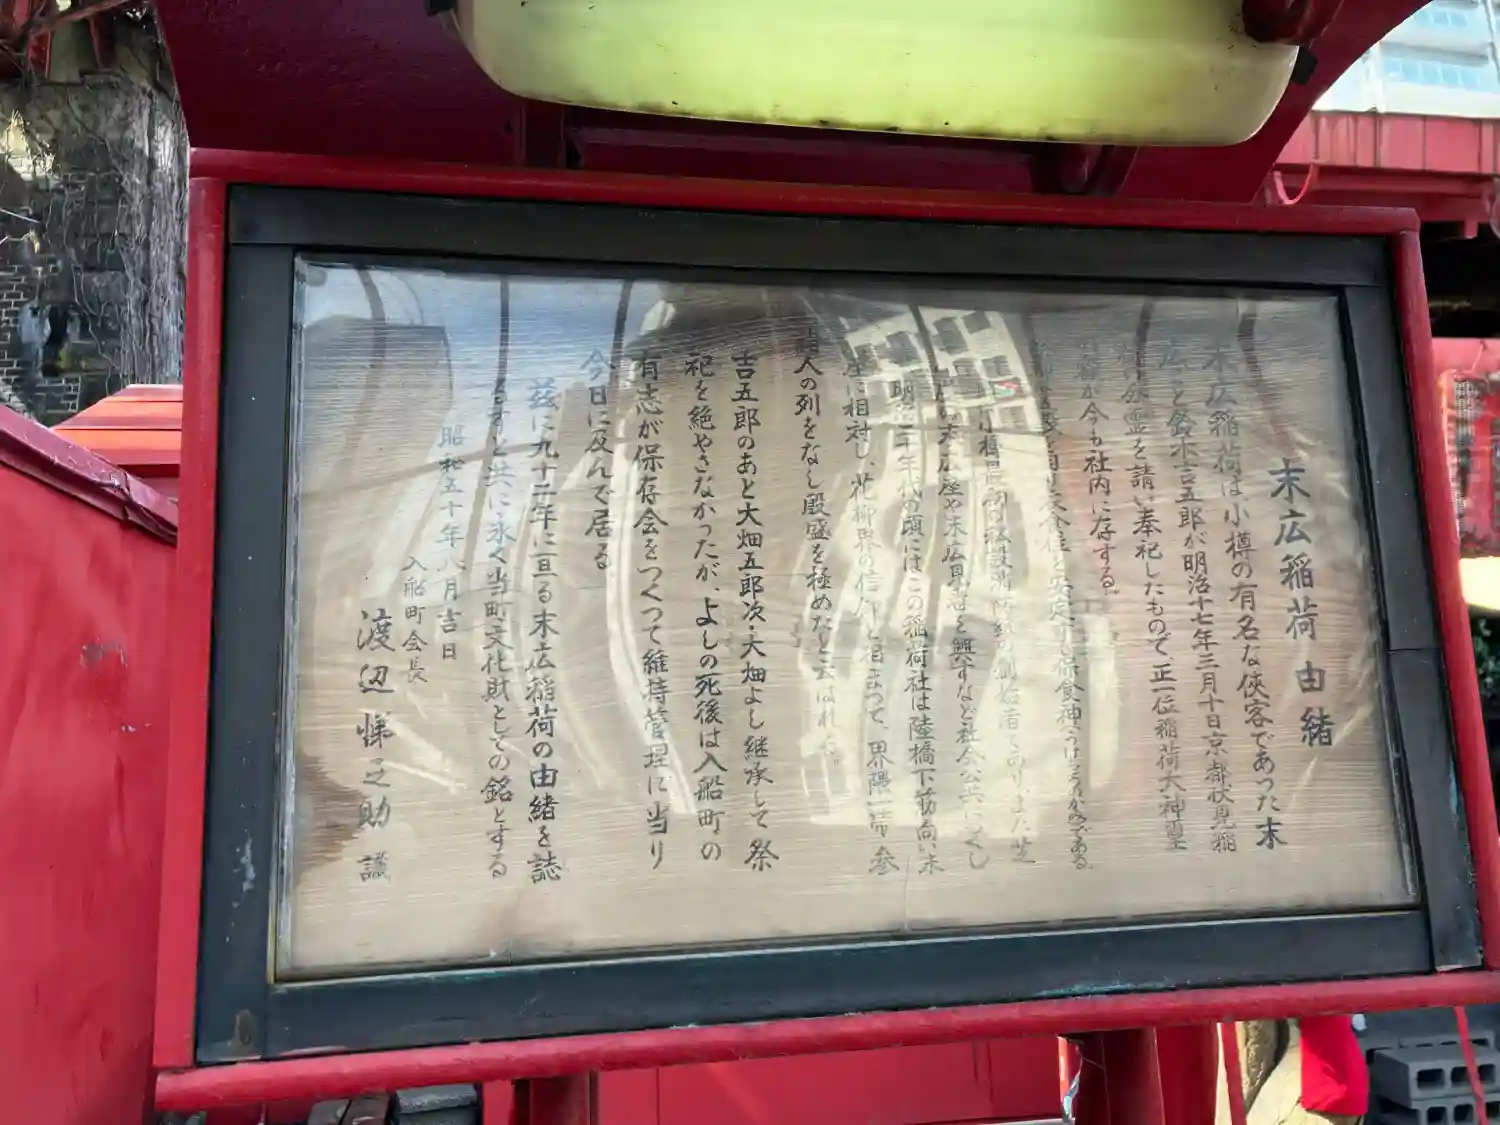 末広稲荷由緒
末広稲荷は小樽の有名な侠客であつた末
広と鈴木吉五郎が明治十七年三月十日京都伏見稲
分霊を請い奉祀したもので、正一位稲荷大神璽
が今も社内に存する。
保食神
小樽最初の私設消防組の創始者であり、また芝
末広座や末広見番を興すなど社会公共につくし
明治二年代の頃にはこの稲荷社は陸橋下筋向い末
座に相対し、花柳界の信仰と相まつて、界隈一帯参
人の列をなし殷盛を極めたと云はれる。
吉五郎のあと大畑五郎次・大畑よし継承して祭
祀を絶やさなかつたが、よしの死後は入船町の
有志が保存会をつくつて維持管理に当り
今日に及んで居る
茲に九十二年に亘る末広稲荷の由緒を誌
すと共に永く当町文化財としての銘とする
昭和五十年八月吉日
入船町会長
渡辺悌之助 謹